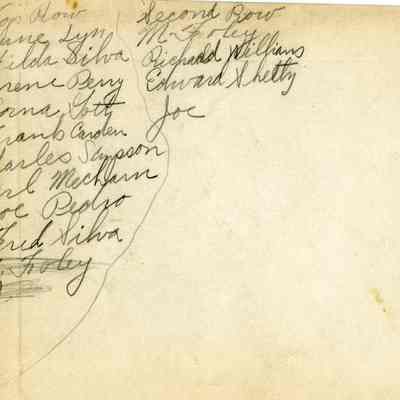 Top Row
June Lyn
Hilda Silva
Irene Perry
Lorna Soty
Frank Carden
Charles Simpson
Earl Mecham
Joe Pedro
Fred Silva
Foley
Second Row
M. Foley
Richard Williams
Edward Shetty
Joe